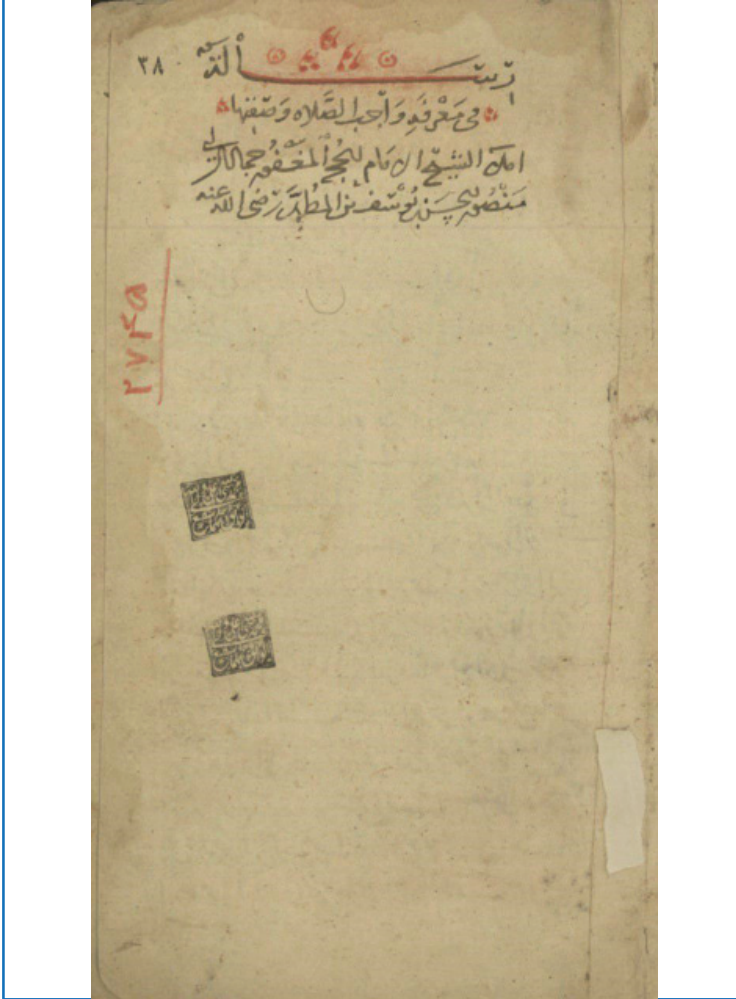 رسالة ٣٨
في معرفة واجب الصلاه وصفتها
املا الشيخ الامام المغفور جمال الدين
منصور الحسن بن يوسف بن المطهر رضى الله عنه
٢٧٤٥